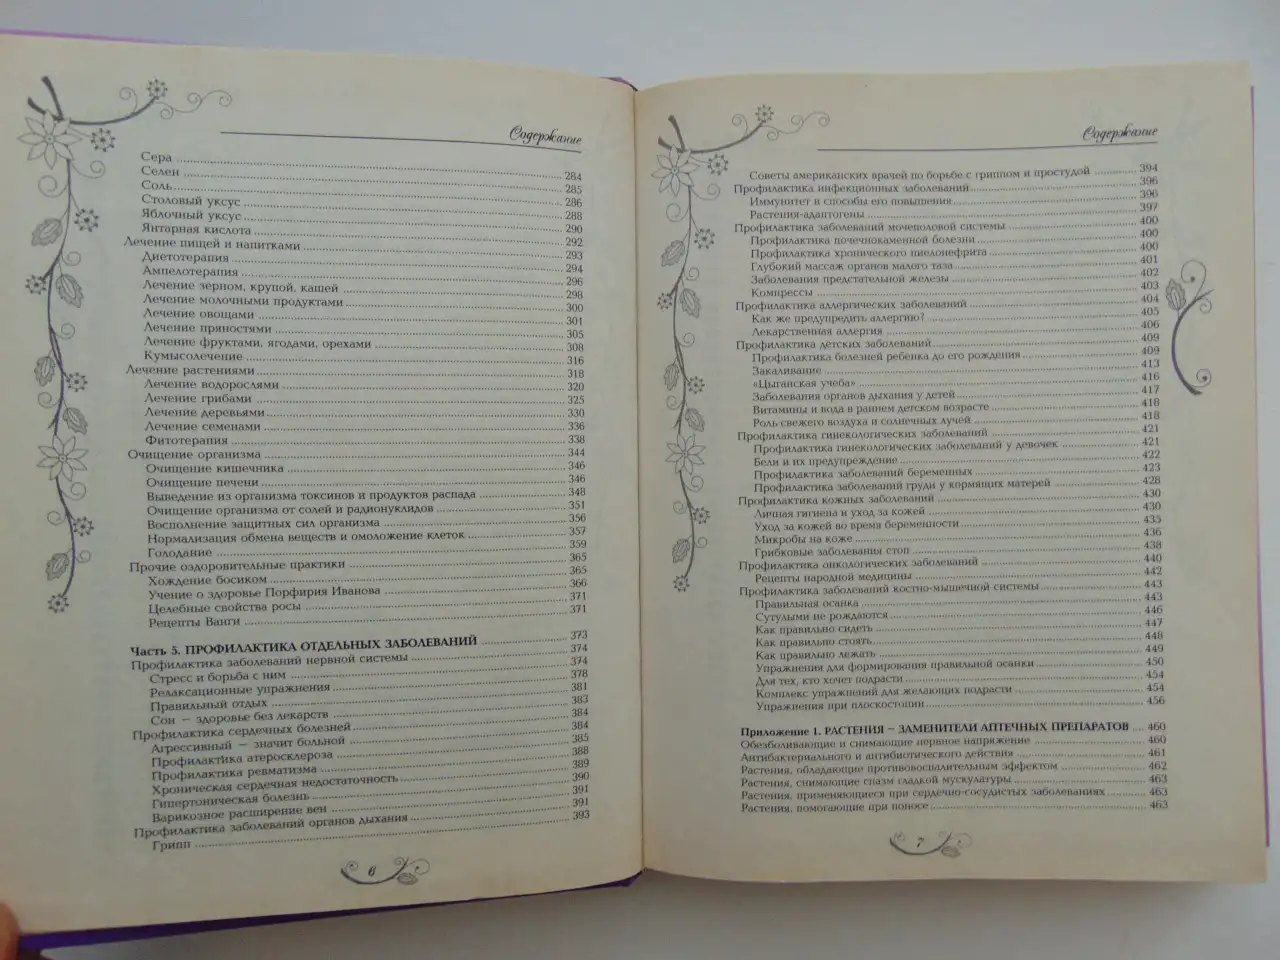 Содержание
Сера 284
Селен 285
Соль 286
Столовый уксус 288
Яблочный уксус 290
Янтарная кислота 292
Лечение пищей и напитками 293
Диетотерапия 294
Ампелотерапия 296
Лечение зерном, крупой, кашей 298
Лечение молочными продуктами 300
Лечение овощами 301
Лечение пряностями 305
Лечение фруктами, ягодами, орехами 308
Кумысолечение 316
Лечение растениями 318
Лечение водорослями 320
Лечение грибами 325
Лечение деревьями 330
Лечение семенами 336
Фитотерапия 338
Очищение организма 344
Очищение кишечника 346
Очищение печени 346
Выведение из организма токсинов и продуктов распада 348
Очищение организма от солей и радионуклидов 351
Восполнение защитных сил организма 356
Нормализация обмена веществ и омоложение клеток 357
Голодание 359
Прочие оздоровительные практики 365
Хождение босиком 365
Учение о здоровье Порфирия Иванова 366
Целебные свойства росы 371
Рецепты Ванги 371
Часть 5. ПРОФИЛАКТИКА ОТДЕЛЬНЫХ ЗАБОЛЕВАНИЙ 373
Профилактика заболеваний нервной системы 374
Стресс и борьба с ним 374
Релаксационные упражнения 378
Правильный отдых 381
Сон – здоровье без лекарств 383
Профилактика сердечных болезней 384
Агрессивный – значит больной 384
Профилактика атеросклероза 385
Профилактика ревматизма 388
Хроническая сердечная недостаточность 389
Гипертоническая болезнь 390
Варикозное расширение вен 391
Профилактика заболеваний органов дыхания 391
Грипп 393
6
Содержание
Советы американских врачей по борьбе с гриппом и простудой 394
Профилактика инфекционных заболеваний 396
Иммунитет и способы его повышения 396
Растения-адаптогены 397
Профилактика заболеваний мочеполовой системы 400
Профилактика почечнокаменной болезни 400
Профилактика хронического пиелонефрита 400
Глубокий массаж органов малого таза 401
Заболевания предстательной железы 402
Компрессы 403
Профилактика аллергических заболеваний 404
Как же предупредить аллергию? 405
Лекарственная аллергия 406
Профилактика детских заболеваний 409
Профилактика болезней ребенка до его рождения 409
Закаливание 413
«Цыганская учеба» 416
Заболевания органов дыхания у детей 417
Витамины и вода в раннем детском возрасте 418
Роль свежего воздуха и солнечных лучей 418
Профилактика гинекологических заболеваний 421
Профилактика гинекологических заболеваний у девочек 421
Бели и их предупреждение 422
Профилактика заболеваний беременных 423
Профилактика заболеваний груди у кормящих матерей 428
Профилактика кожных заболеваний 430
Личная гигиена и уход за кожей 430
Уход за кожей во время беременности 435
Микробы на коже 436
Грибковые заболевания стоп 438
Профилактика онкологических заболеваний 440
Рецепты народной медицины 442
Профилактика заболеваний костно-мышечной системы 443
Правильная осанка 443
Сутулыми не рождаются 446
Как правильно сидеть 447
Как правильно стоять 448
Как правильно лежать 449
Упражнения для формирования правильной осанки 450
Для тех, кто хочет подрасти 454
Комплекс упражнений для желающих подрасти 454
Упражнения при плоскостопии 456
Приложение 1. РАСТЕНИЯ – ЗАМЕНИТЕЛИ АПТЕЧНЫХ ПРЕПАРАТОВ 460
Обезболивающие и снимающие нервное напряжение 460
Антибактериального и антибиотического действия 461
Растения, обладающие противовоспалительным эффектом 462
Растения, снимающие спазм гладкой мускулатуры 463
Растения, применяющиеся при сердечно-сосудистых заболеваниях 463
Растения, помогающие при поносе 463
7